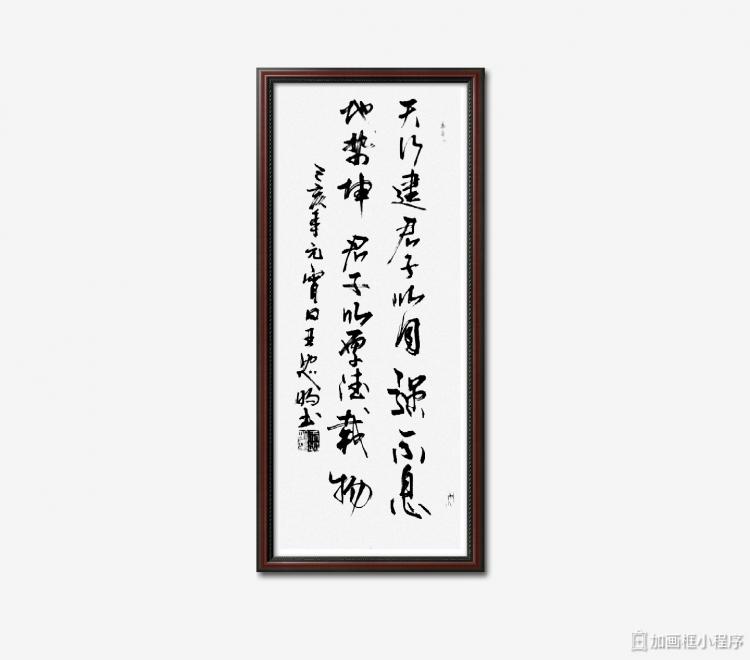 天行建君子以自強不息
地勢坤君子以厚德載物
己亥年元宵日王书
加画框小程序